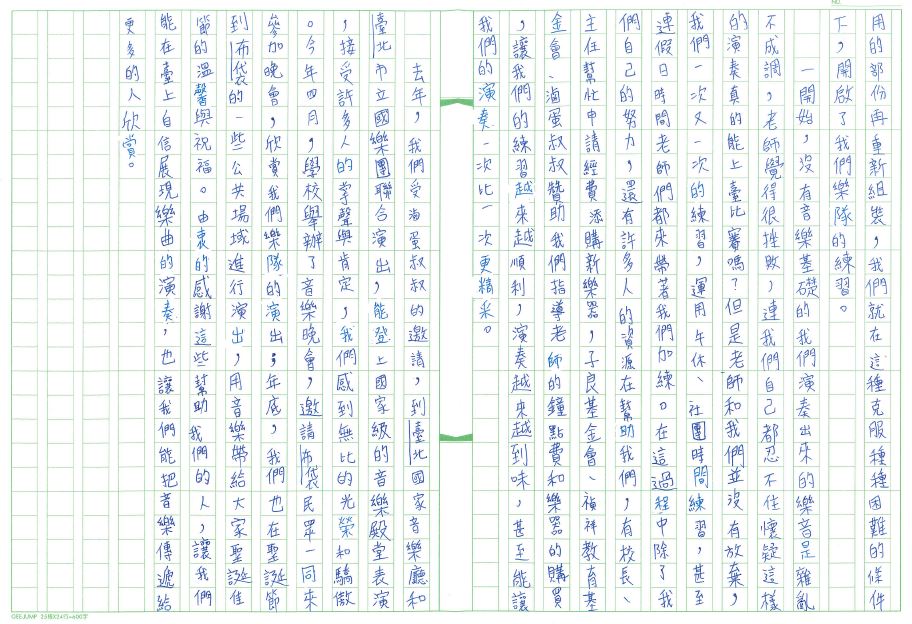 NO.
用的部份再重新組裝，我們就在這種克服種種困難的條件
下，開啟了我們樂隊的練習。
一開始，沒有音樂基礎的我們演奏出來的樂音是雜亂
不成調，老師覺得很挫敗，連我們自己都忍不住懷疑這樣
的演奏真的能上臺比審嗎？但是老師和我們並沒有放棄，
我們一次又一次的練習，運用午休、社團時間練習，甚至
連假日時間老師們都來帶著我們加練。在這過程中除了我
們自己的努力，還有許多人的資源在幫助我們，有校長、
主任幫忙申請經費添購新樂器，子良基金會、禎祥教育基
金會、滷蛋叔叔贊助我們指導老師的鐘點費和樂器的購買
，讓我們的練習越來越順利，演奏越來越到味，甚至能讓
我們的演奏一次比一次更精采。
去年，我們受滷蛋叔叔的邀請，到臺北國家音樂廳和
臺北市立國樂團聯合演出，能登上國家級的音樂殿堂表演
，接受許多人的掌聲與肯定，我們感到無比的光榮和驕傲
。今年四月，學校舉辦了音樂晚會，邀請布袋民眾一同來
參加晚會，欣賞我們樂隊的演出；年底，我們也在聖誕節
到布袋的一些公共場域進行演出，用音樂帶給大家聖誕佳
節的溫馨與祝福。由衷的感謝這些幫助我們的人，讓我們
能在臺上自信展現樂曲的演奏，也讓我們能把音樂傳遞給
更多的人欣賞。
GEEJUMP 25格X24行=600字